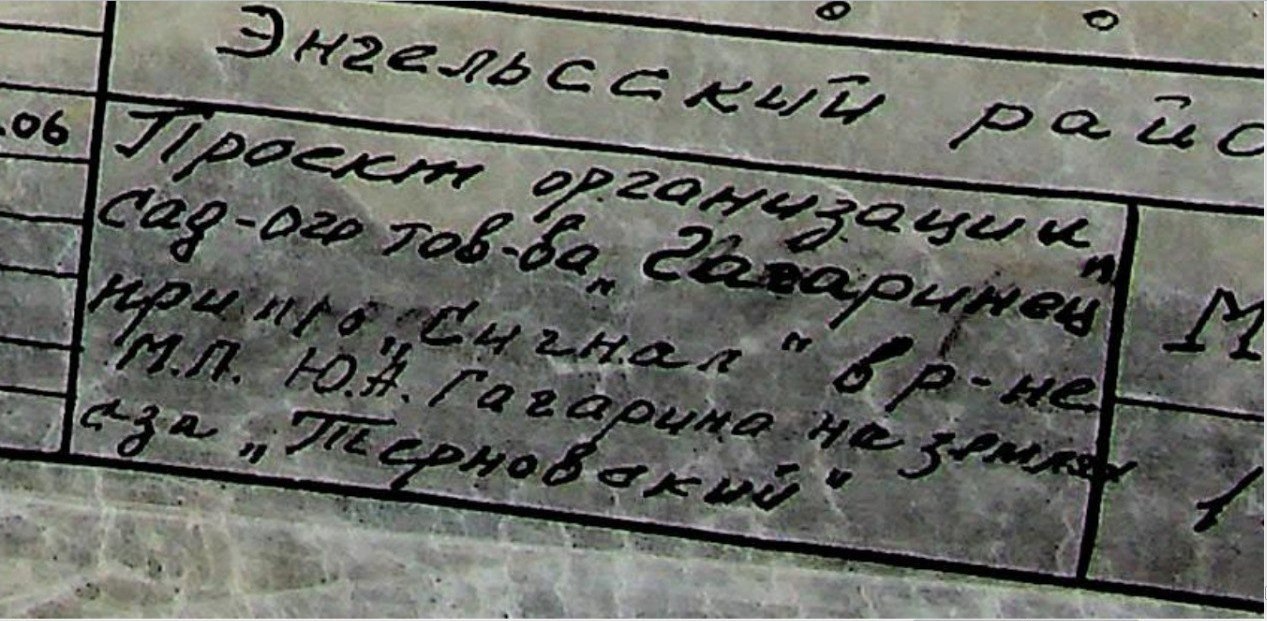 Энгельсский райо
.06
Проект организации
сад-ого тов-ва „Гагаринец"
при п/о „Сигнал" в р-не
М.П. Ю.А. Гагарина на землях
с-за „Терновский"
М
1